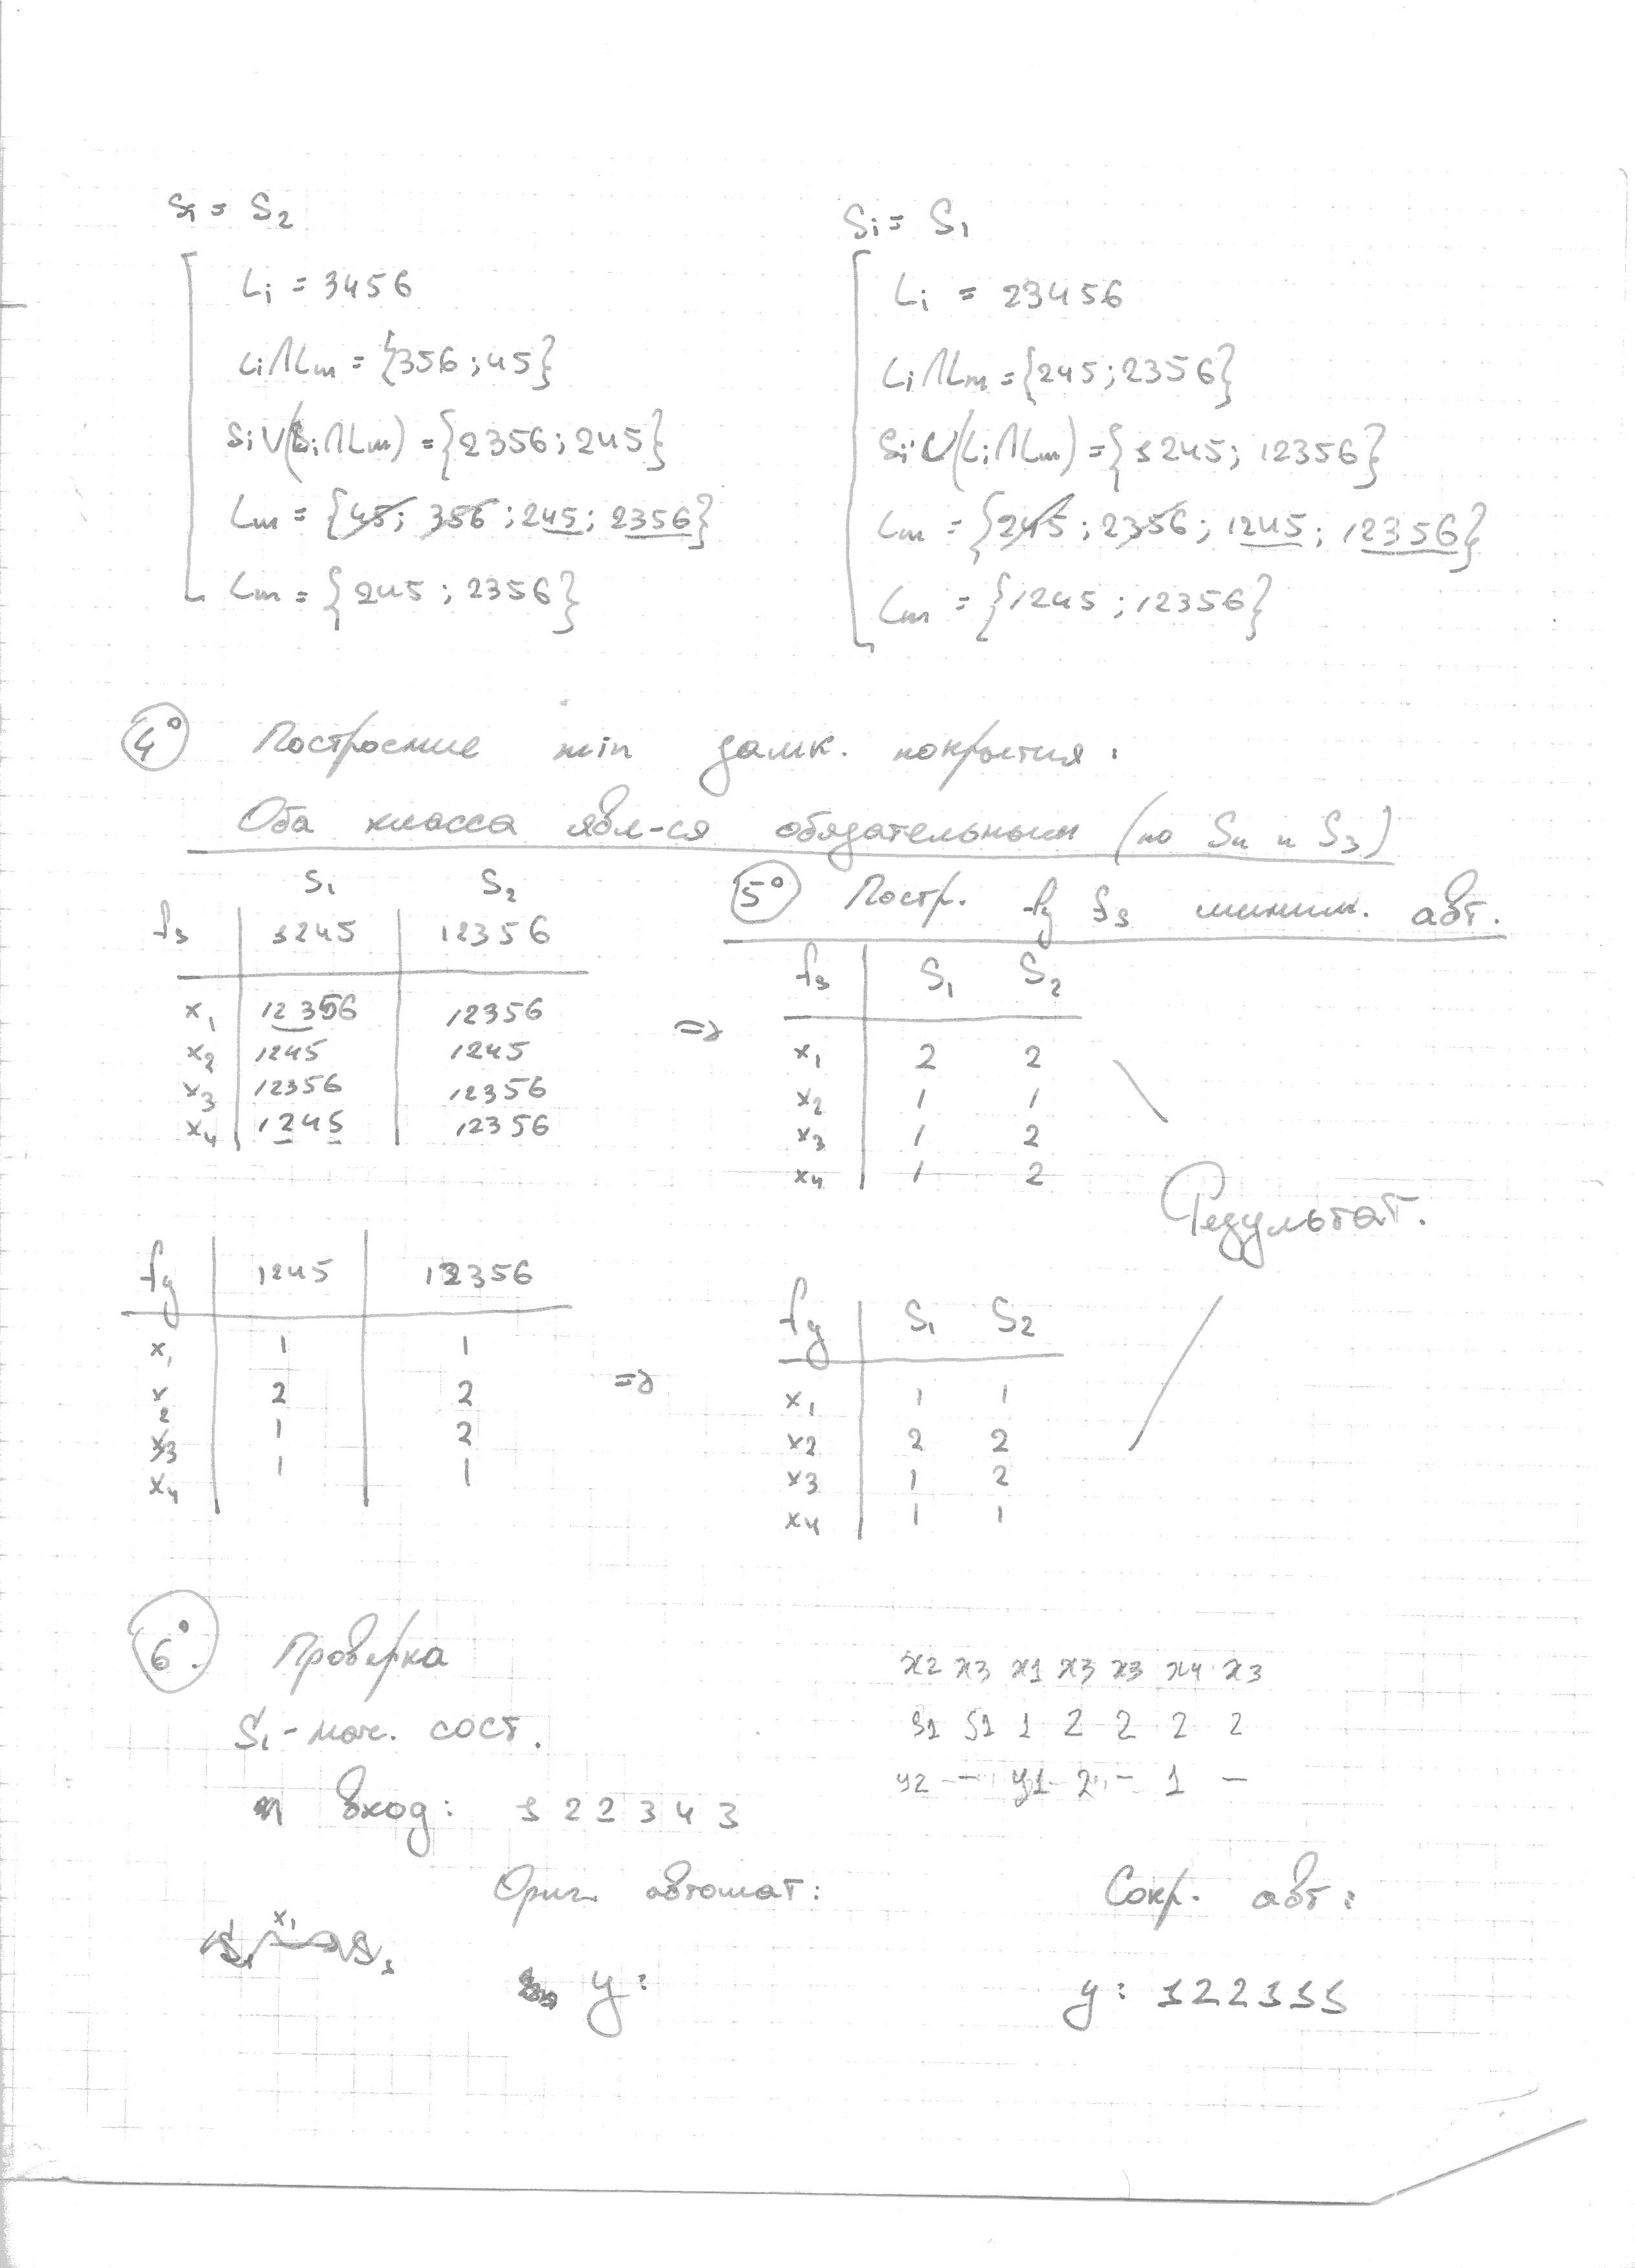 Si = S2
Li = 3456
Li∩Lm = {356; 45}
Si∪(Li∩Lm) = {2356; 245}
Lm = {45; 356; 245; 2356}
Lm = {245; 2356}
Si = S1
Li = 23456
Li∩Lm = {245; 2356}
Si∪(Li∩Lm) = {1245; 12356}
Lm = {245; 2356; 1245; 12356}
Lm = {1245; 12356}
4° Построение min замк. покрытия:
Оба класса явл-ся обязательным (по S4 и S3)
S1 S2
fs 1245 12356
x1 12356 12356
x2 1245 1245
x3 12356 12356
x4 1245 12356
5° Постр. fy fs миним. авт.
=> fs S1 S2
x1 2 2
x2 1 1
x3 1 2
x4 1 2
Результат.
fy 1245 12356
x1 1 1
x2 2 2
x3 1 2
x4 1 1
=> fy S1 S2
x1 1 1
x2 2 2
x3 1 2
x4 1 1
6°. Проверка
S1 - нач. сост.
вход: 1 2 2 3 4 3
x2 x3 x1 x3 x3 x4 x3
S1 S1 1 2 2 2 2
y2 — y1 2 — 1 —
Ориг. автомат:
y:
Сокр. авт:
y: 122111